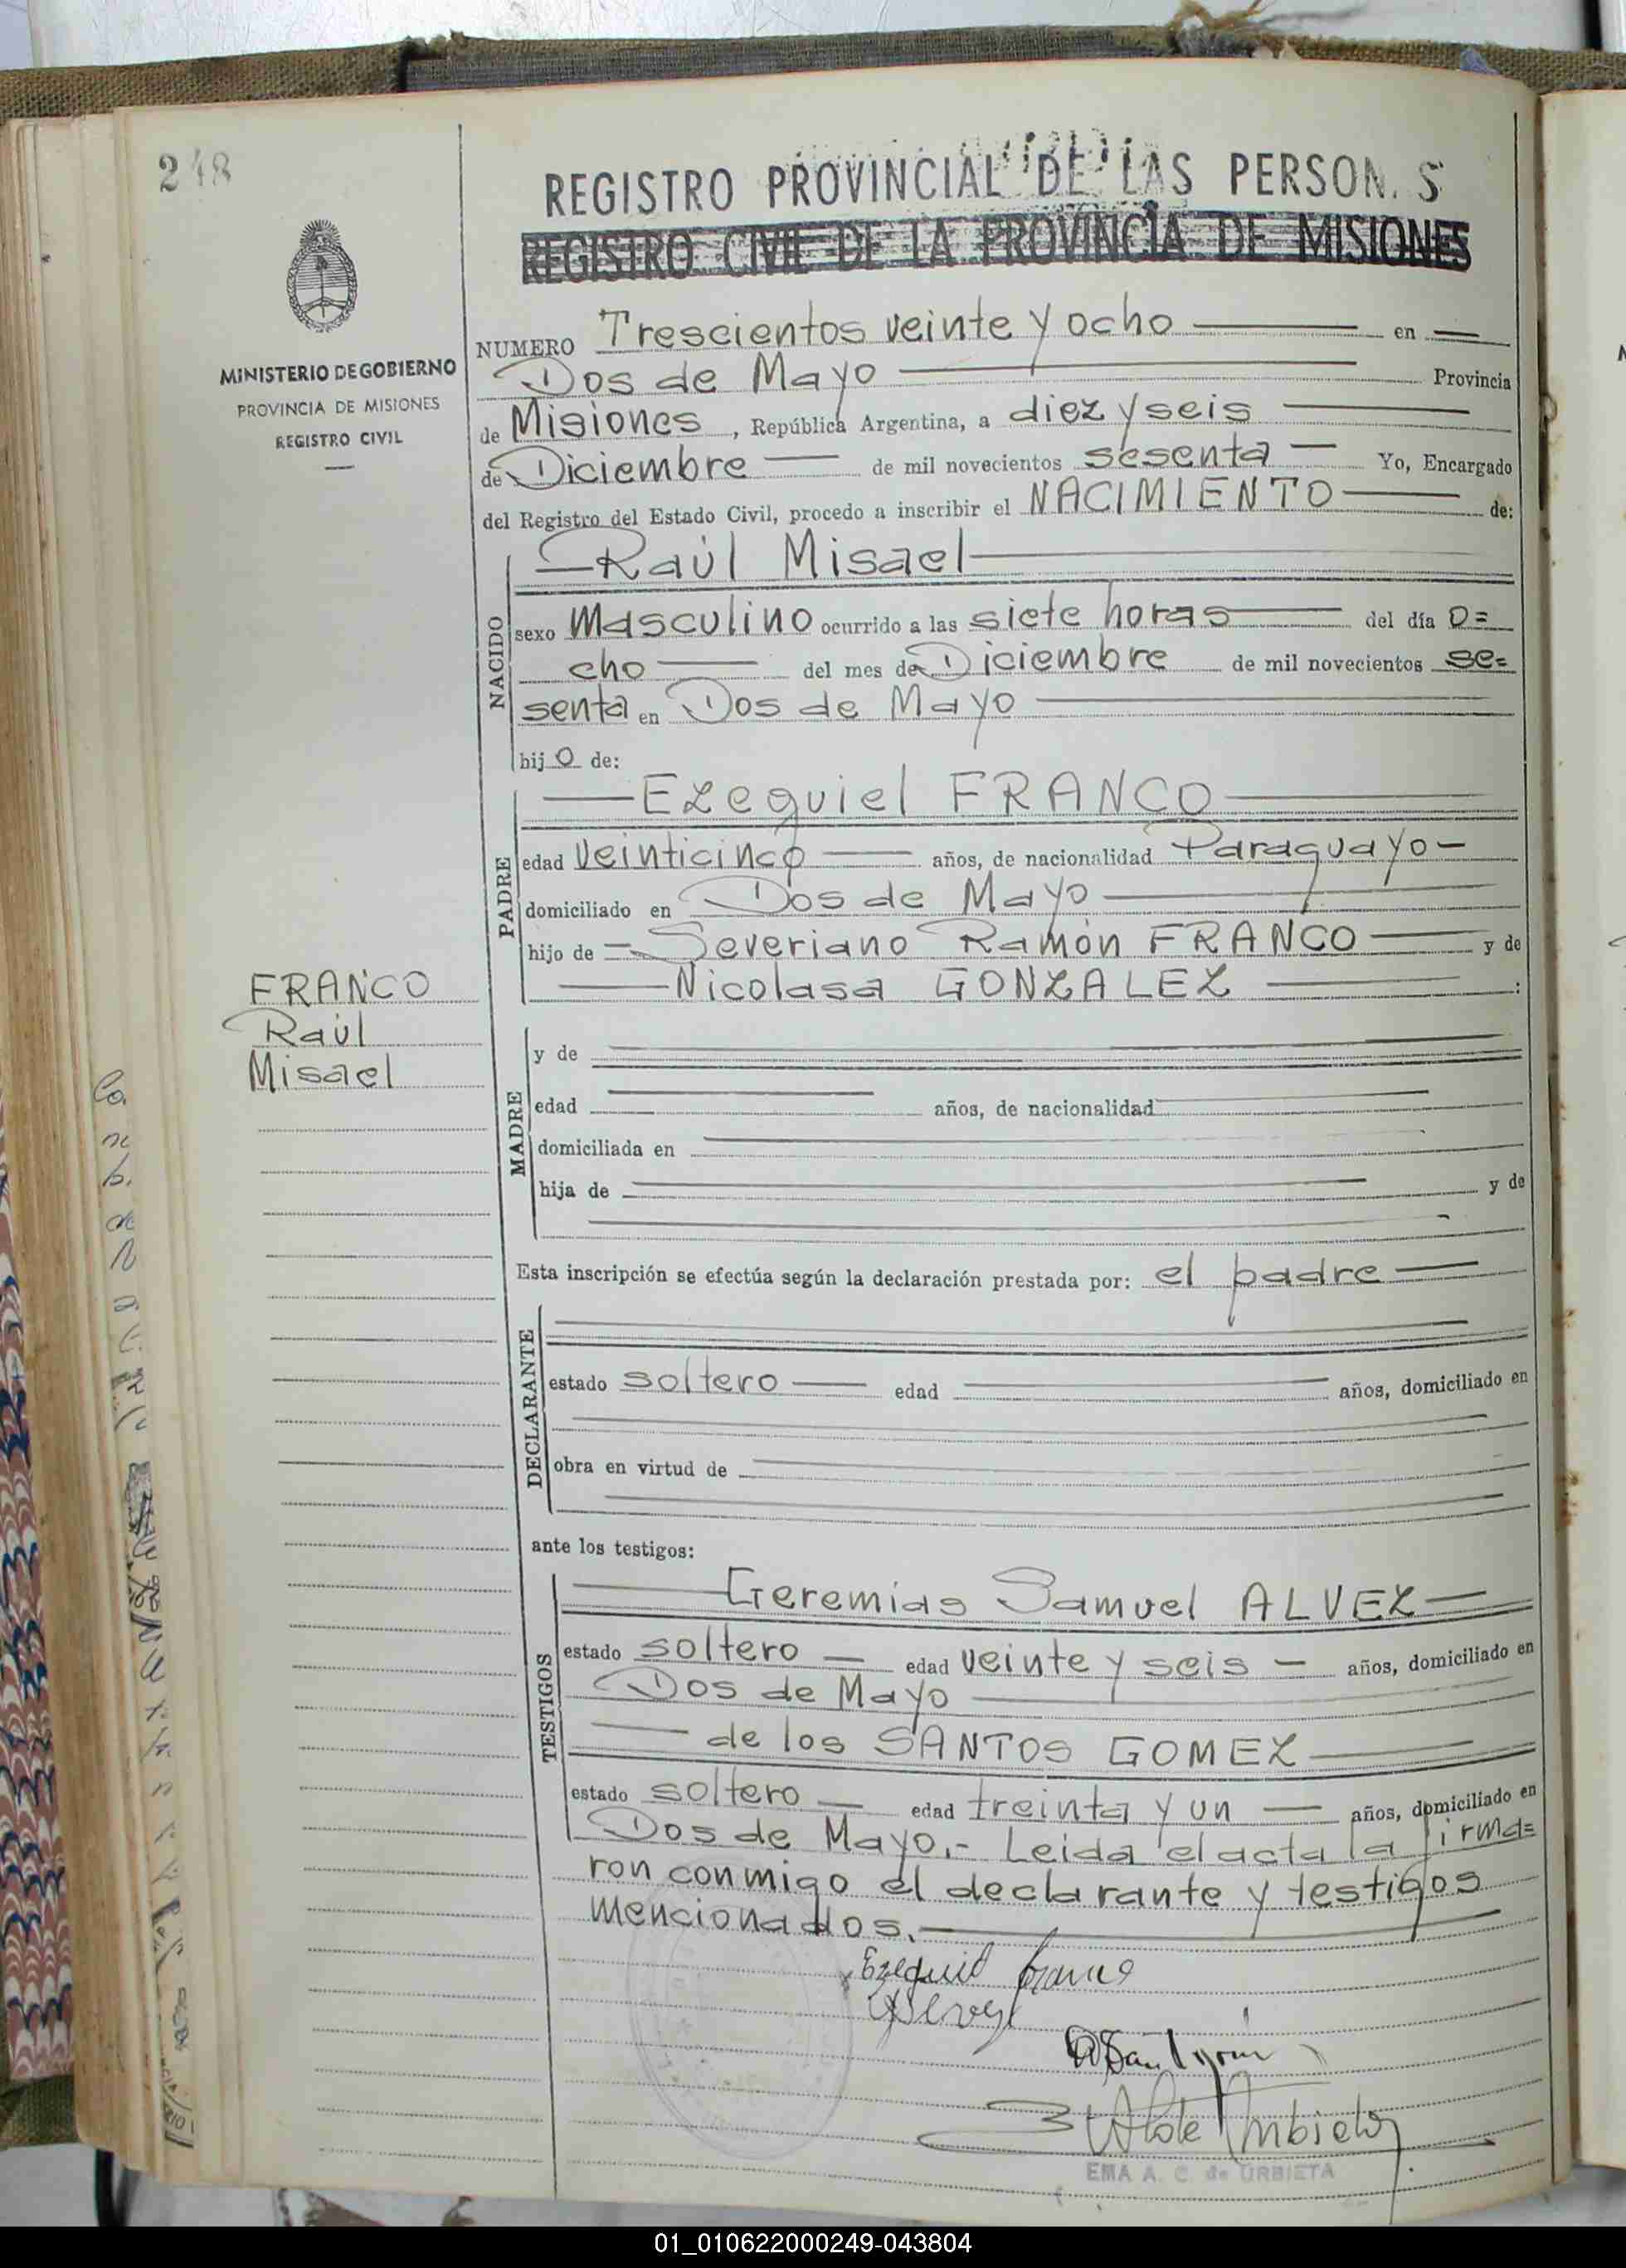 248
REGISTRO PROVINCIAL DE LAS PERSON. S
REGISTRO CIVIL DE LA PROVINCIA DE MISIONES
MINISTERIO DE GOBIERNO
PROVINCIA DE MISIONES
REGISTRO CIVIL
NUMERO Trescientos veinte y ocho en
Dos de Mayo Provincia
de Misiones, República Argentina, a diez y seis
de Diciembre de mil novecientos sesenta Yo, Encargado
del Registro del Estado Civil, procedo a inscribir el NACIMIENTO de:
NACIDO
Raúl Misael
sexo Masculino ocurrido a las siete horas del día o=
cho del mes de Diciembre de mil novecientos se=
senta en Dos de Mayo
hijo de:
PADRE
Ezequiel FRANCO
edad veinticinco años, de nacionalidad Paraguayo-
domiciliado en Dos de Mayo
hijo de Severiano Ramón FRANCO y de
Nicolasa GONZALEZ :
FRANCO
Raúl
Misael
MADRE
y de
edad años, de nacionalidad
domiciliada en
hija de y de
Esta inscripción se efectúa según la declaración prestada por: el padre
DECLARANTE
estado soltero edad años, domiciliado en
obra en virtud de
ante los testigos:
TESTIGOS
Geremias Samuel ALVEZ
estado soltero edad veinte y seis años, domiciliado en
Dos de Mayo
de los SANTOS GOMEZ
estado soltero edad treinta y un años, domiciliado en
Dos de Mayo.- Leida el acta la firma=
ron conmigo el declarante y testigos
mencionados.
Ezequiel Franco
EMA A. C. de URBIETA
01_010622000249-043804